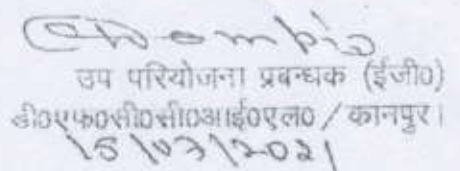 उप परियोजना प्रबन्धक (ईजी०)
डी०एफ०सी०सी०आई०एल० / कानपुर।
15/03/2021